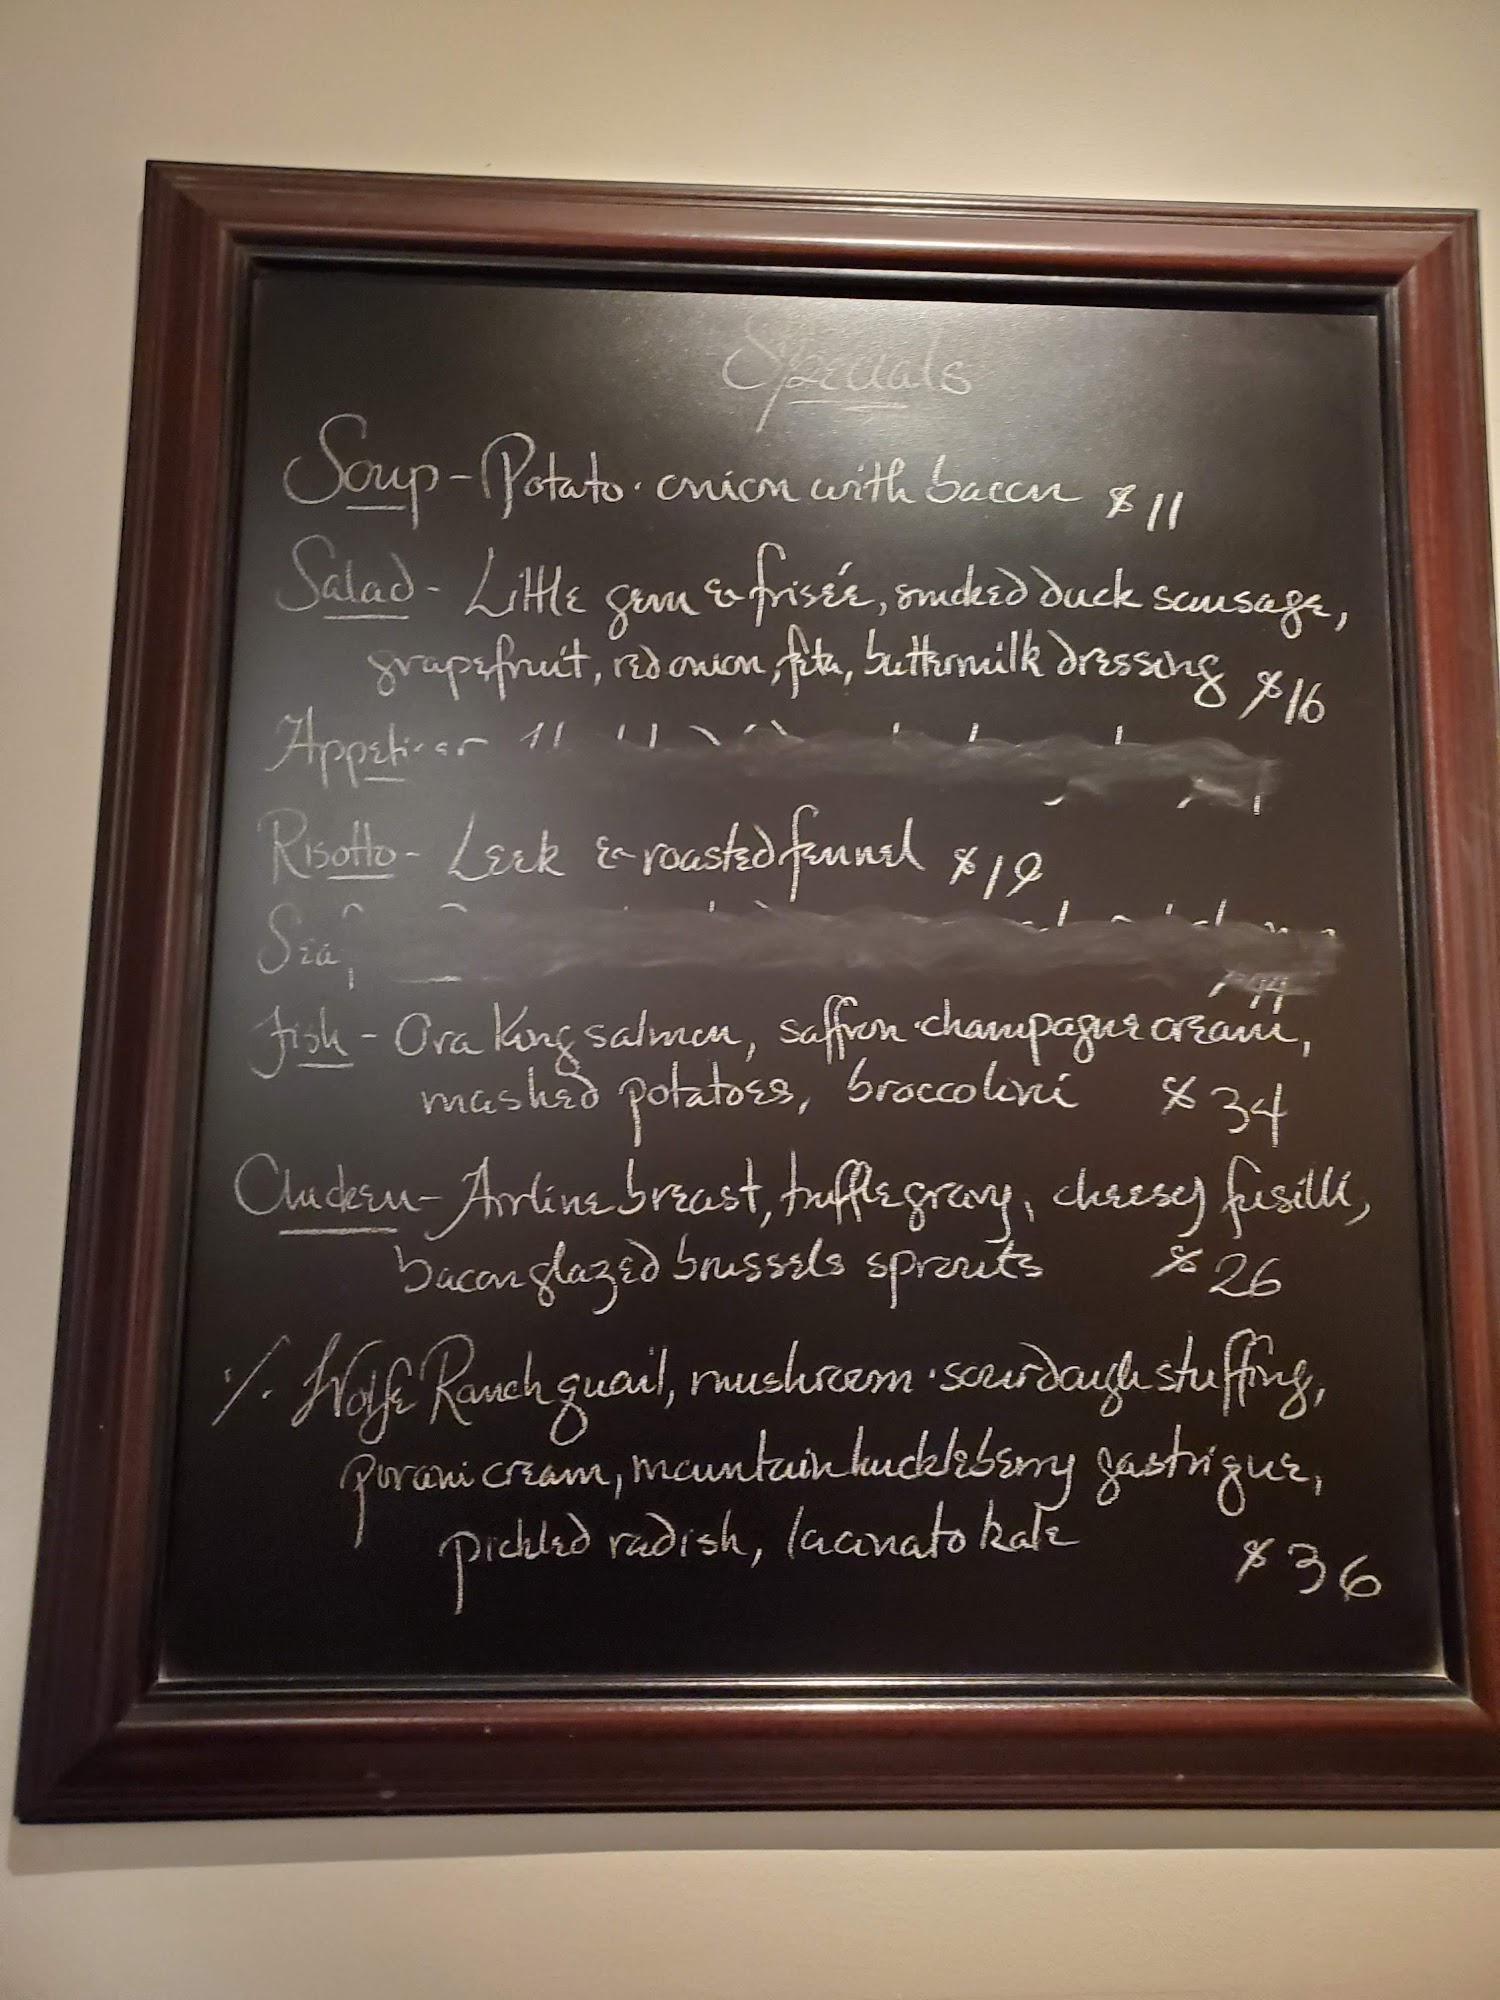 Specials
Soup - Potato · onion with bacon $11
Salad - Little gem & frisée, smoked duck sausage,
grapefruit, red onion, feta, buttermilk dressing $16
Appetizer
Risotto - Leek & roasted fennel $19
Sea
Fish - Ora King salmon, saffron · champagne cream,
mashed potatoes, broccolini $34
Chicken - Airline breast, truffle gravy, cheesy fusilli,
bacon glazed brussels sprouts $26
·/. Wolfe Ranch quail, mushroom · sourdough stuffing,
porcini cream, mountain huckleberry gastrique,
pickled radish, lacinato kale $36